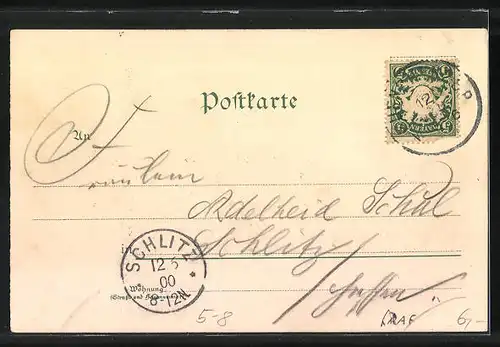 Postkarte
An
Fräulein
Adelheid Schul
in Schlitz
Wohnung
(Straße und Hausnummer)
Hessen
SCHLITZ
12 5
00
8-12N
12
5 5
BAYERN
5-8
6,-